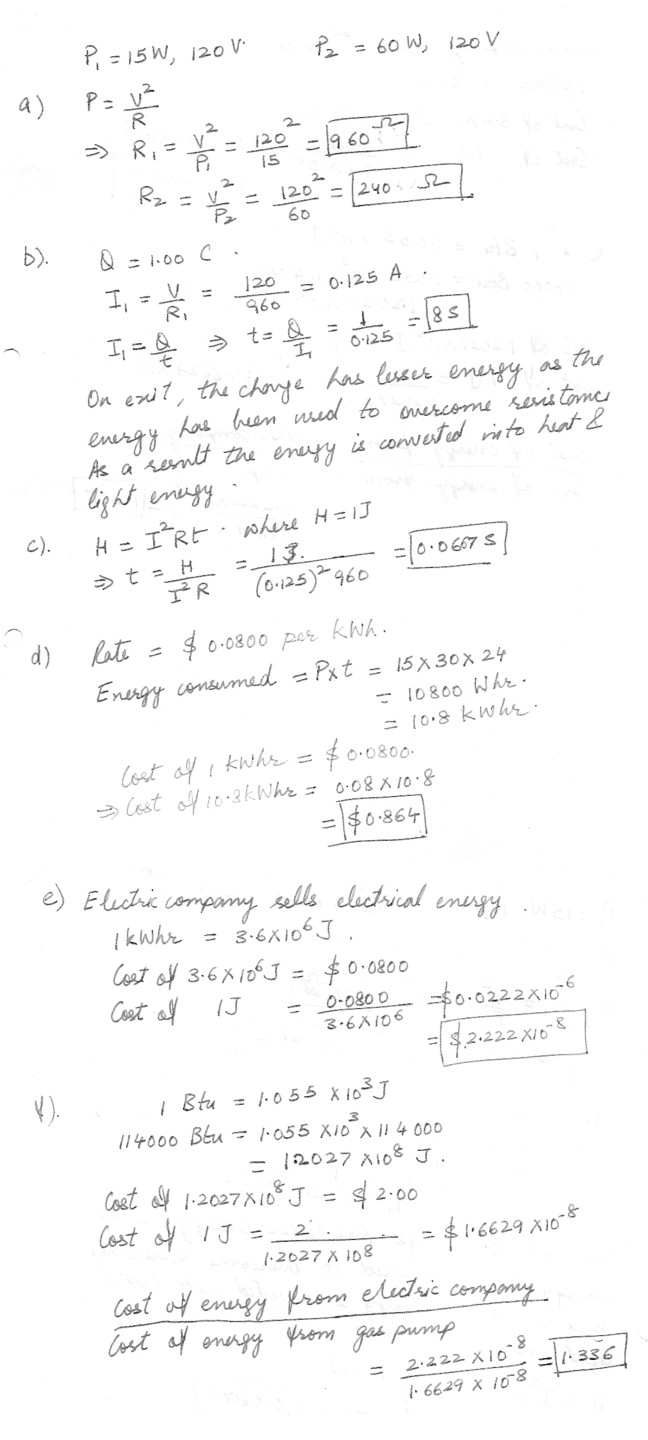 P₁ = 15W, 120 V. P₂ = 60 W, 120 V
a) P = V²/R
⇒ R₁ = V²/P₁ = 120²/15 = 960 Ω
R₂ = V²/P₂ = 120²/60 = 240 Ω
b). Q = 1.00 C.
I₁ = V/R₁ = 120/960 = 0.125 A.
I₁ = Q/t ⇒ t = Q/I₁ = 1/0.125 = 8 S
On exit, the charge has lesser energy as the
energy has been used to overcome resistance
As a result the energy is converted into heat &
light energy.
c). H = I²Rt. where H = 1J
⇒ t = H/I²R = 13./(0.125)² 960 = 0.0667 S
d) Rate = $ 0.0800 per kWh.
Energy consumed = P×t = 15 × 30 × 24
= 10800 Whr.
= 10.8 kWhr.
Cost of 1 kWhr = $ 0.0800.
⇒ Cost of 10.8kWhr = 0.08 × 10.8
= $0.864
e) Electric company sells electrical energy.
1kWhr = 3.6×10⁶ J.
Cost of 3.6×10⁶J = $ 0.0800
Cost of 1J = 0.0800/3.6×10⁶ = $0.0222×10⁻⁶
= $ 2.222×10⁻⁸
f). 1 Btu = 1.055 ×10³ J
114000 Btu = 1.055 ×10³ × 114000
= 1.2027 ×10⁸ J.
Cost of 1.2027×10⁸ J = $ 2.00
Cost of 1J = 2/1.2027 × 10⁸ = $ 1.6629 ×10⁻⁸
Cost of energy from electric company
Cost of energy from gas pump
= 2.222 ×10⁻⁸/1.6629 × 10⁻⁸ = 1.336